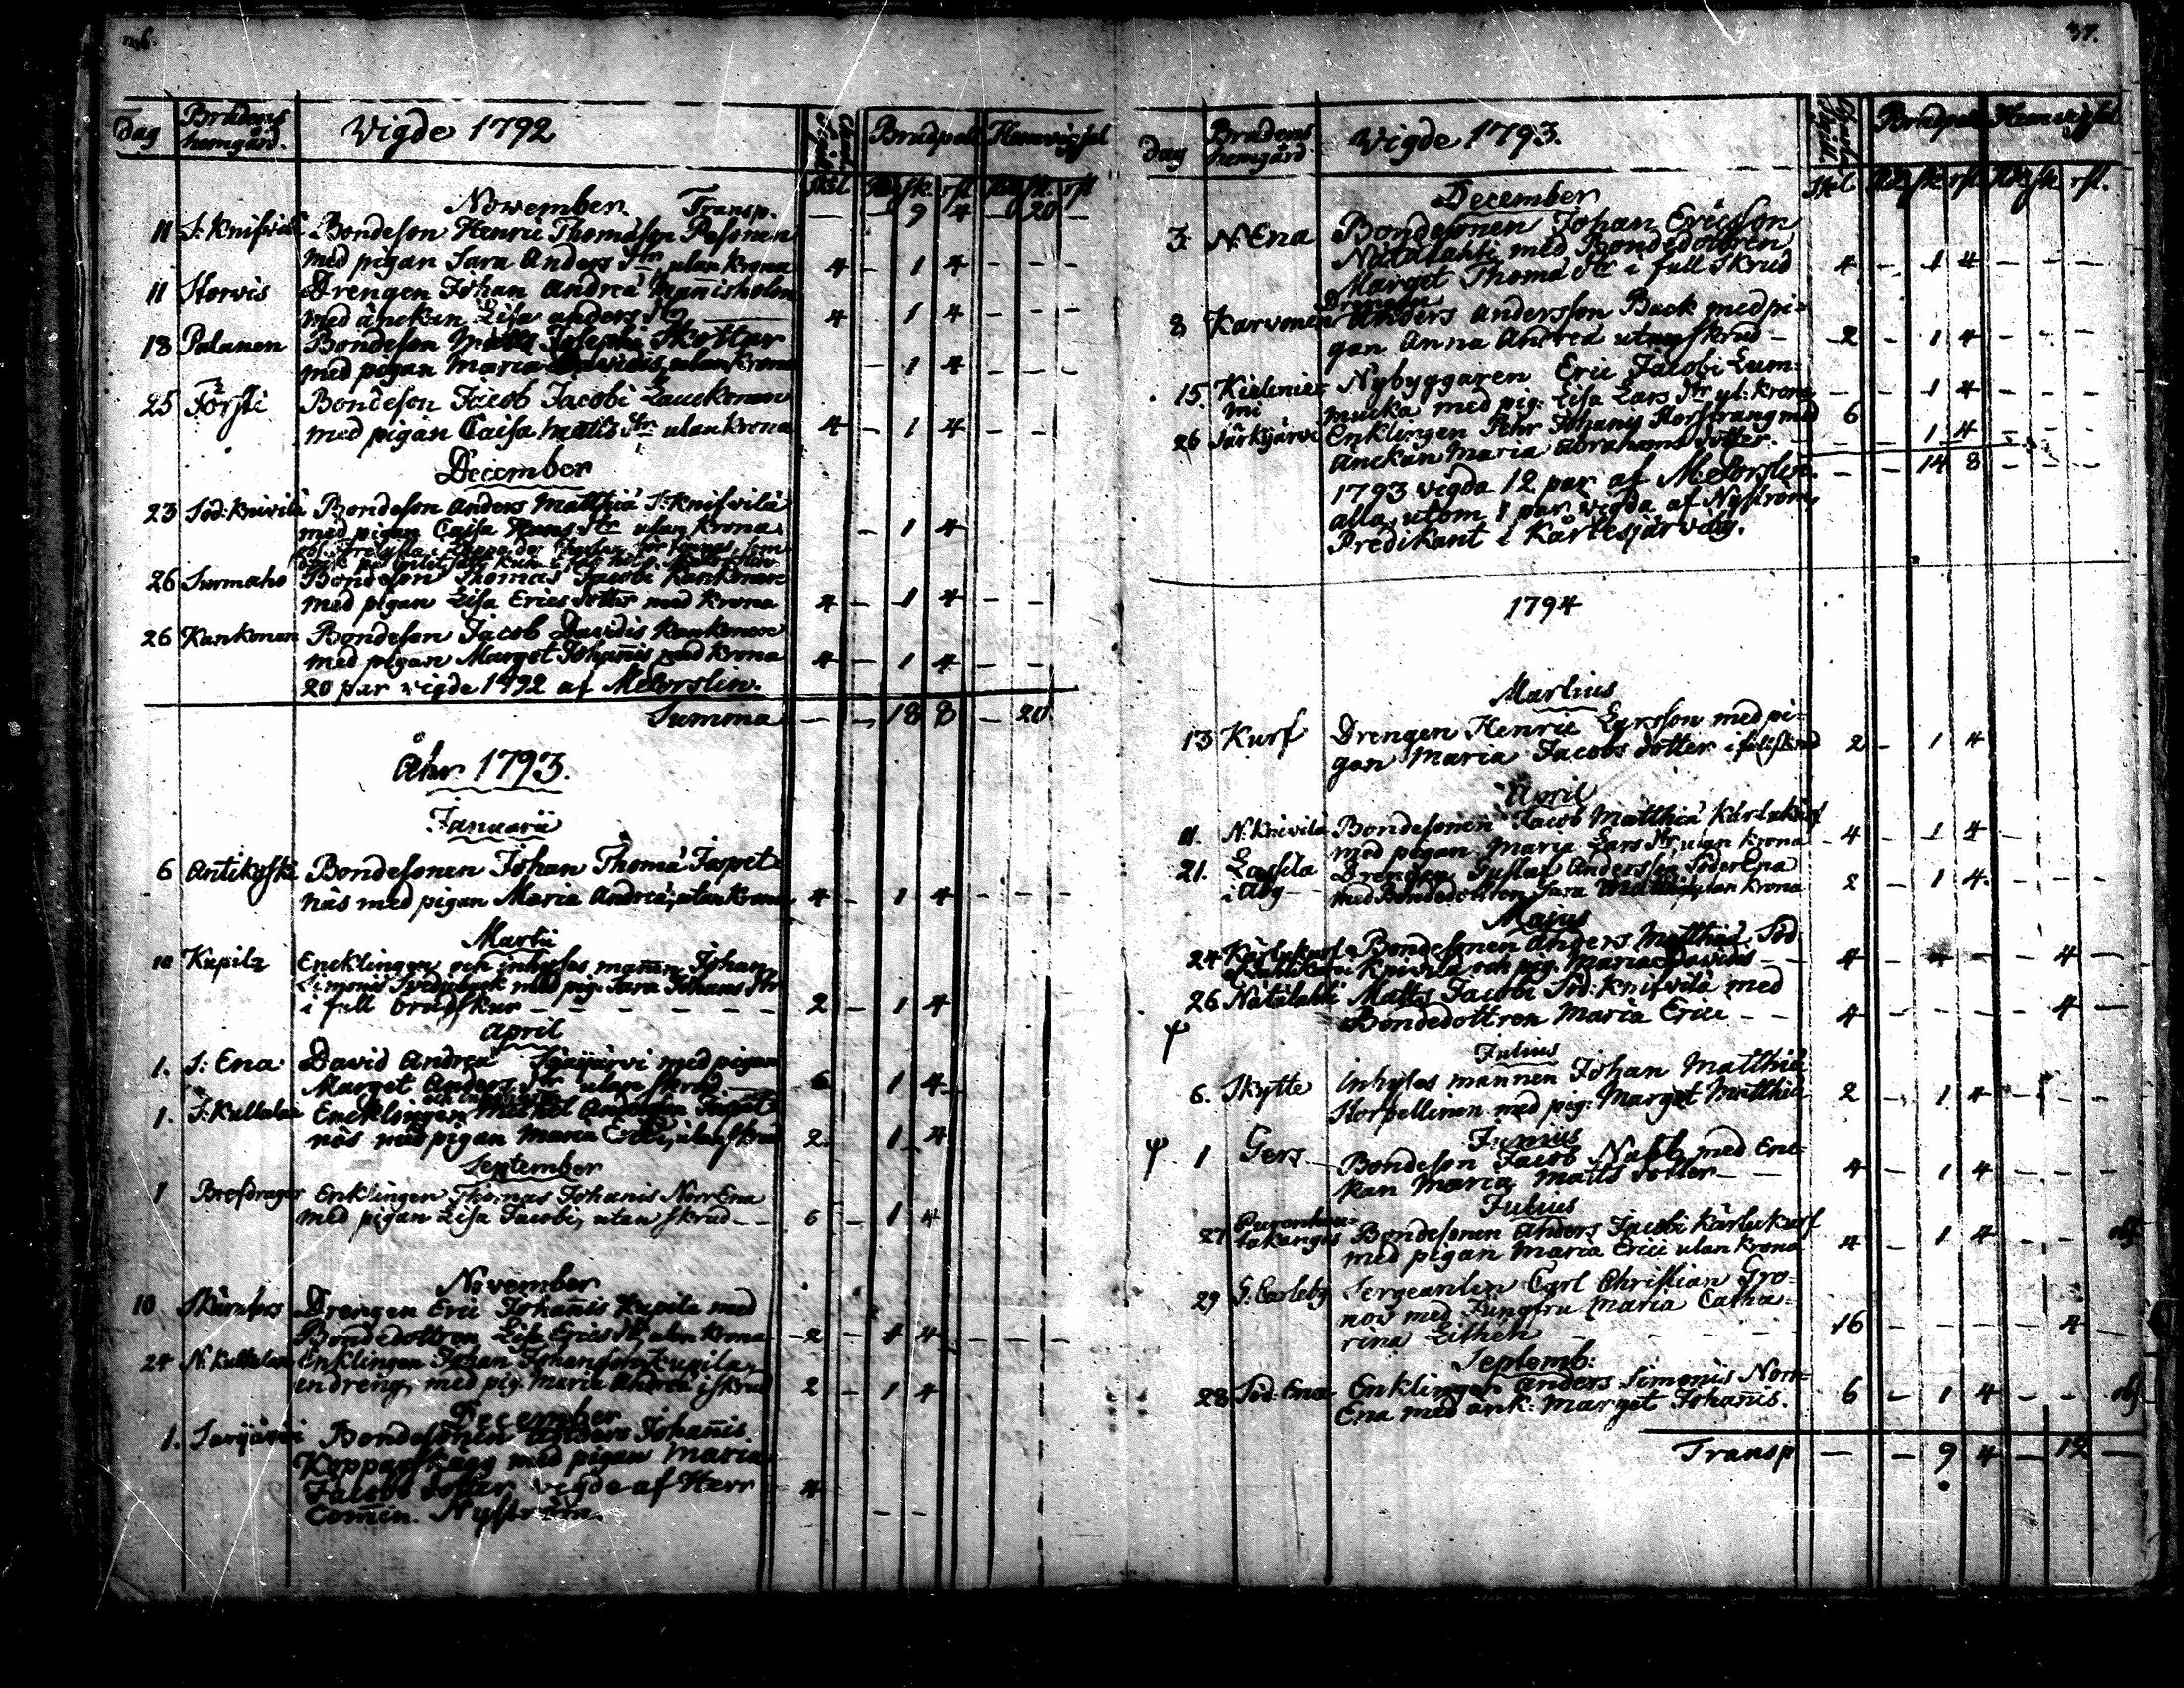 Dag Brudens hemgård. Vigde 1792 Brudpal Hemvigsel
November. Transp. — — 9 4 — 20 —
11 S: Knifvilä Bondeson Henric Thomasson Pesonen
med pigan Sara Anders dtr, utan krona 4 — 1 4 — — —
11 Storvis Drengen Johan Andreä Mannisholm
med änckan Lisa Anders dtr — 4 1 4 — — —
18 Palanen Bondeson Matts Josephi Skottar
med pigan Maria Davidis, utan krona — 1 4 — — —
25 Försti Bondeson Jacob Jacobi Lauckonen
med pigan Caisa Matts dtr utan krona 4 — 1 4 — —
December
23 Söd: Knivilä Bondeson Anders Matthiä S: Knifvilä
med pigan Caisa Hans dtr utan krona — 1 4
26 Surmaho Bondeson Thomas Jacobi Kankonen
med pigan Lisa Erics dotter med krona 4 — 1 4 — —
26 Kankonen Bondeson Jacob Davidis Kankonen
med pigan Marget Johannis med krona 4 — 1 4 — —
20 par vigde 1792 af M Corslin.
Summa — — 18 8 — 20
Åhr 1793.
Januarii
6 Antikoski Bondesonen Johan Thomä Jaspet
näs med pigan Maria Andreä, utan krona 4 — 1 4 — — —
Martii
10 Kupila Encklingen och inhyses mannen Johan
Simonis Svedjeback med pig. Sara Johans dtr
i full brudskur — — — — — — 2 — 1 4
April
1. S: Ena David Andreä Sääjärvi med pigan
Marget Anders dtr utan skrud — 6 1 4 —
1. S: Kultalan Encklingen Michel Andersson Jaspet
näs med pigan Maria Erici, utan skrud 2. 1 4
September
1 Brefdragar Enklingen Thomas Johanis Norr Ena
med pigan Lisa Jacobi, utan skrud — — 6 — 1 4
November
10 Skärnfors Drengen Eric Johannis Kupila med
Bondedottren Lisa Erics dtr utan krona — 2 — 1 4 — — —
24 N: Kultalan Enklingen Johan Johansson Kupila,
en dreng, med pig. Maria Andreä i skrud 2 — 1 4
December
1. Sarijärvi Bondesonen Anders Johannis
Koppargskagg med pigan Maria
Jacobs dotter vigde af Herr 4
Comin. Nyström. — —
37.
Dag Brudens hemgård Vigde 1793. Brudpal Hemvigsel
December
3: N: Ena Bondesonen Johan Ericsson
Nätälahti med Bondedottren
Marget Thomä dtr i full skrud 4 — 1 4 — — —
Drengen
8 Karvonen Anders Andersson Back med pi-
gan Anna Andreä utan skrud — 2 — 1 4 — — —
15. Kieleniemi Nybyggaren Eric Jacobi Lum-
mucka med pig: Lisa Lars dtr ut: krona — — 1 4 — — —
26 Särkijärvi Enklingen Pehr Johanis Storstrang med 6
änckan Maria Abrahams dotter — — 1 4 — — —
1793 vigda 12 par af M Corslin. — — 14 8 — — —
alla, utom 1 par vigda af Nyström,
Predikant i Kårtesjärvi by.
1794
Martius
13 Kurf Drengen Henric Larsson med pi-
gan Maria Jacobs dotter i full skrud 2 — 1 4
April
11. N. Knivila Bondesonen Jacob Matthiä Karlukurf
med pigan Maria Lars dtr utan krona 4 — 1 4 —
21. Lassila i Abg Drengen Gustaf Andersson Söder Ena
med Bondedottren Sara Matts dtr utan krona 2 — 1 4. — — —
Majus
24 Kärlukurf Bondesonen Anders Matthiä Söd
Knivila och pig. Maria Davidis — 4 — — — 4 —
26 Nätälahti Matts Jacobi Söd: Knifvilä med
Bondedottren Maria Erici — — 4 — — — — 4 —
Julius
6. Skytte Inhyses mannen Johan Matthiä
Storpellinen med pig: Marget Matthiä 2 — 1 4 — — —
Junius
1 Gers Bondeson Jacob Nabb med Enc-
kan Maria Matts dotter — — 4 — 1 4 — — —
Julius
27 Bondesonen Anders Jacobi Kärlukurf
med pigan Maria Erici utan krona 4 — 1 4 — — obs
29 G. Carleby Sergeanten Carl Christian Gro-
nov med Jungfru Maria Catha-
rina Lithen — — — — 16 — — — — 4 —
Septemb:
28 Söd: Ena Enklingen Anders Simonis Norr-
Ena med änk: Marget Johanis. 6 — 1 4 — — obs
Transp — — 9 4 — 12 —